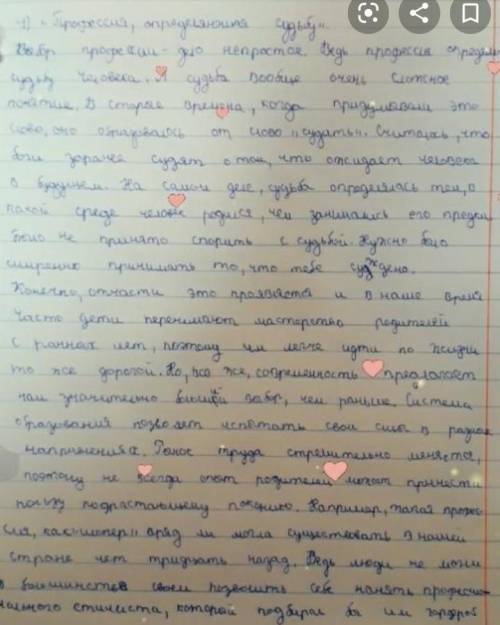 1) "Профессия, определяющая судьбу".
Выбр професии - дело непростое. Ведь професия определяет
судьбу человека. А судьба вообще очень сложное
понятие. В старые времена, когда придумывали это
слово, оно образовалось от слово "судить". Считалось, что
боги заранее судят о том, что ожидает человека
в будущем. На самом деле, судьба определялась тем, в
какой среде человек родился, чем занимались его предки
Было не принято спорить с судьбой. Нужно было
смиренно принимать то, что тебе суждено.
Конечно, отчасти это проявляется и в наше время
Часто дети перенимают мастерство родителей
с ранних лет, поэтому им легче идти по жизни
то же дорогой. Но, все же, современность предлагает
нам значительно больший выбр, чем раньше. Система
образования позволяет испытать свои силы в разных
направлениях. Рынок труда стремительно меняется,
поэтому не всегда опыт родителей может принести
пользу подрастающему поколению. Например, такая профес-
сия, как "шопер" вряд ли могла существовать в нашей
стране лет тридцать назад. Ведь люди не могли
в большинстве своем позволить себе нанять професио-
нального стилиста, которой подбирал бы им гардероб